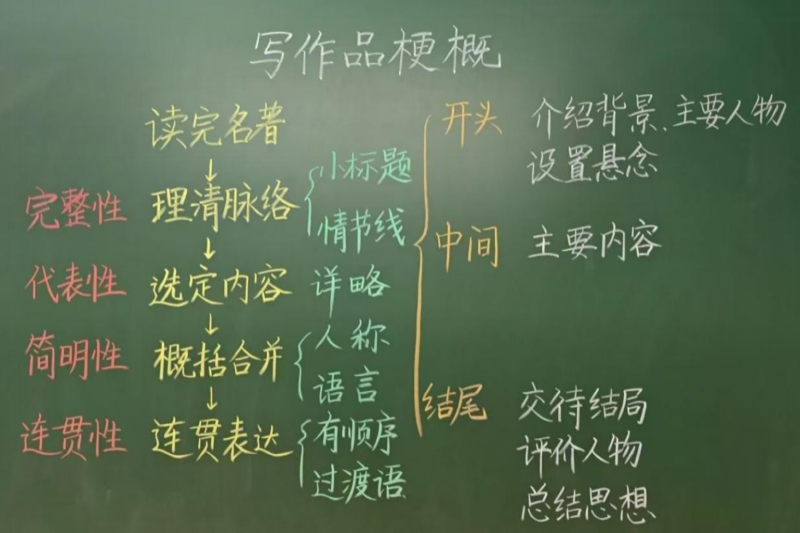 写作品梗概
读完名著
完整性 理清脉络 小标题 情节线
代表性 选定内容 详略
简明性 概括合并 人称 语言
连贯性 连贯表达 有顺序 过渡语
开头 介绍背景、主要人物
设置悬念
中间 主要内容
结尾 交待结局
评价人物
总结思想